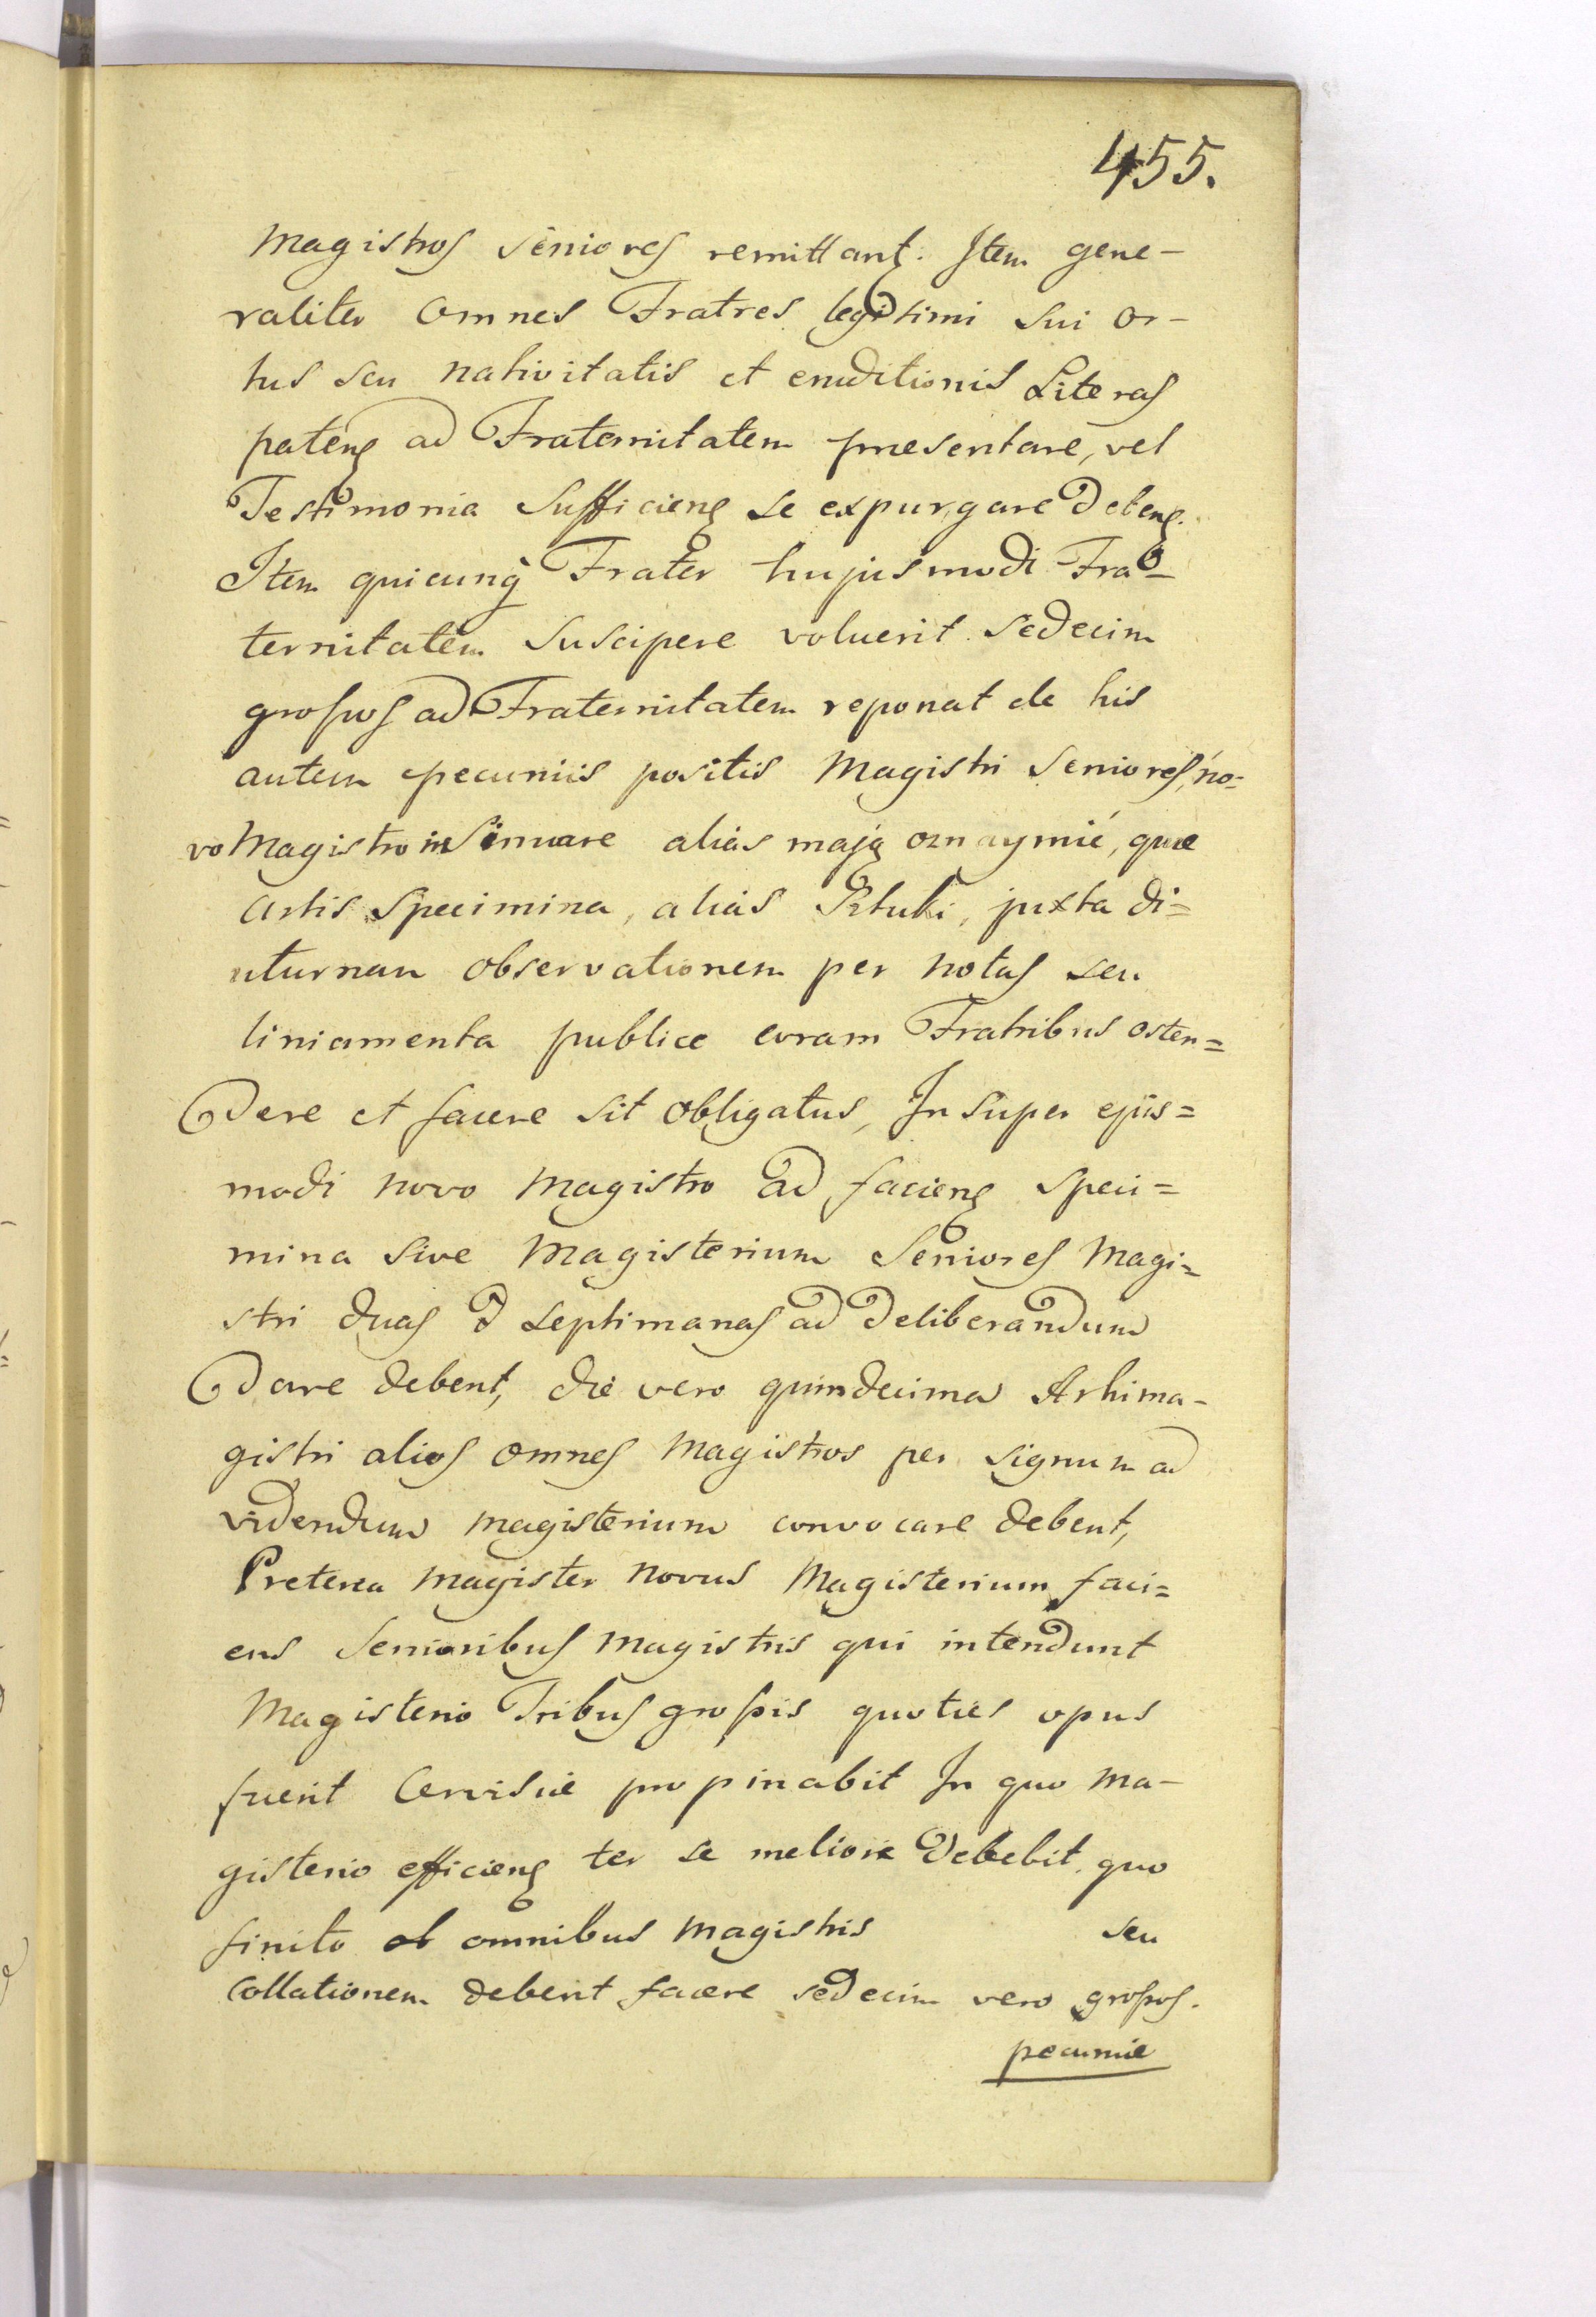 455.
Magistros seniores remittant. Item gene-
raliter omnes Fratres legitimi sui or-
tus seu nativitatis et eruditionis Literas
patens ad Fraternitatem presentare, vel
Testimonia sufficiens se expurgare debens.
Item quicunq Frater hujusmodi Fra-
ternitatem suscipere voluerit sedecim
grossos ad Fraternitatem reponat de his
autem pecuniis positis Magistri seniores, no-
vo Magistro insinuare alias mają oznaymić, que
artis specimina, alias Sztuki, juxta di=
uturnam observationem per notas seu
liniamenta publice coram Fratribus osten=
dere et facere sit obligatus, Insuper ejus=
modi novo Magistro ad faciens speci=
mina sive Magisterium Seniores Magi=
stri duas d septimanas ad deliberandum
dare debent, die vero quindecima Arhima-
gistri alios omnes Magistros per signum ad
videndum magisterium convocare debent,
Preterea magister novus Magisterium faci=
ens Senioribus Magistris qui intendunt
Magisterio Tribus grossis quoties opus
fuerit Cervisie propinabit In quo Ma-
gisterio efficiens ter se meliore debebit quo
finito ab omnibus Magistris seu
Collationem debent facere sedecim vero grossos.
pecunie